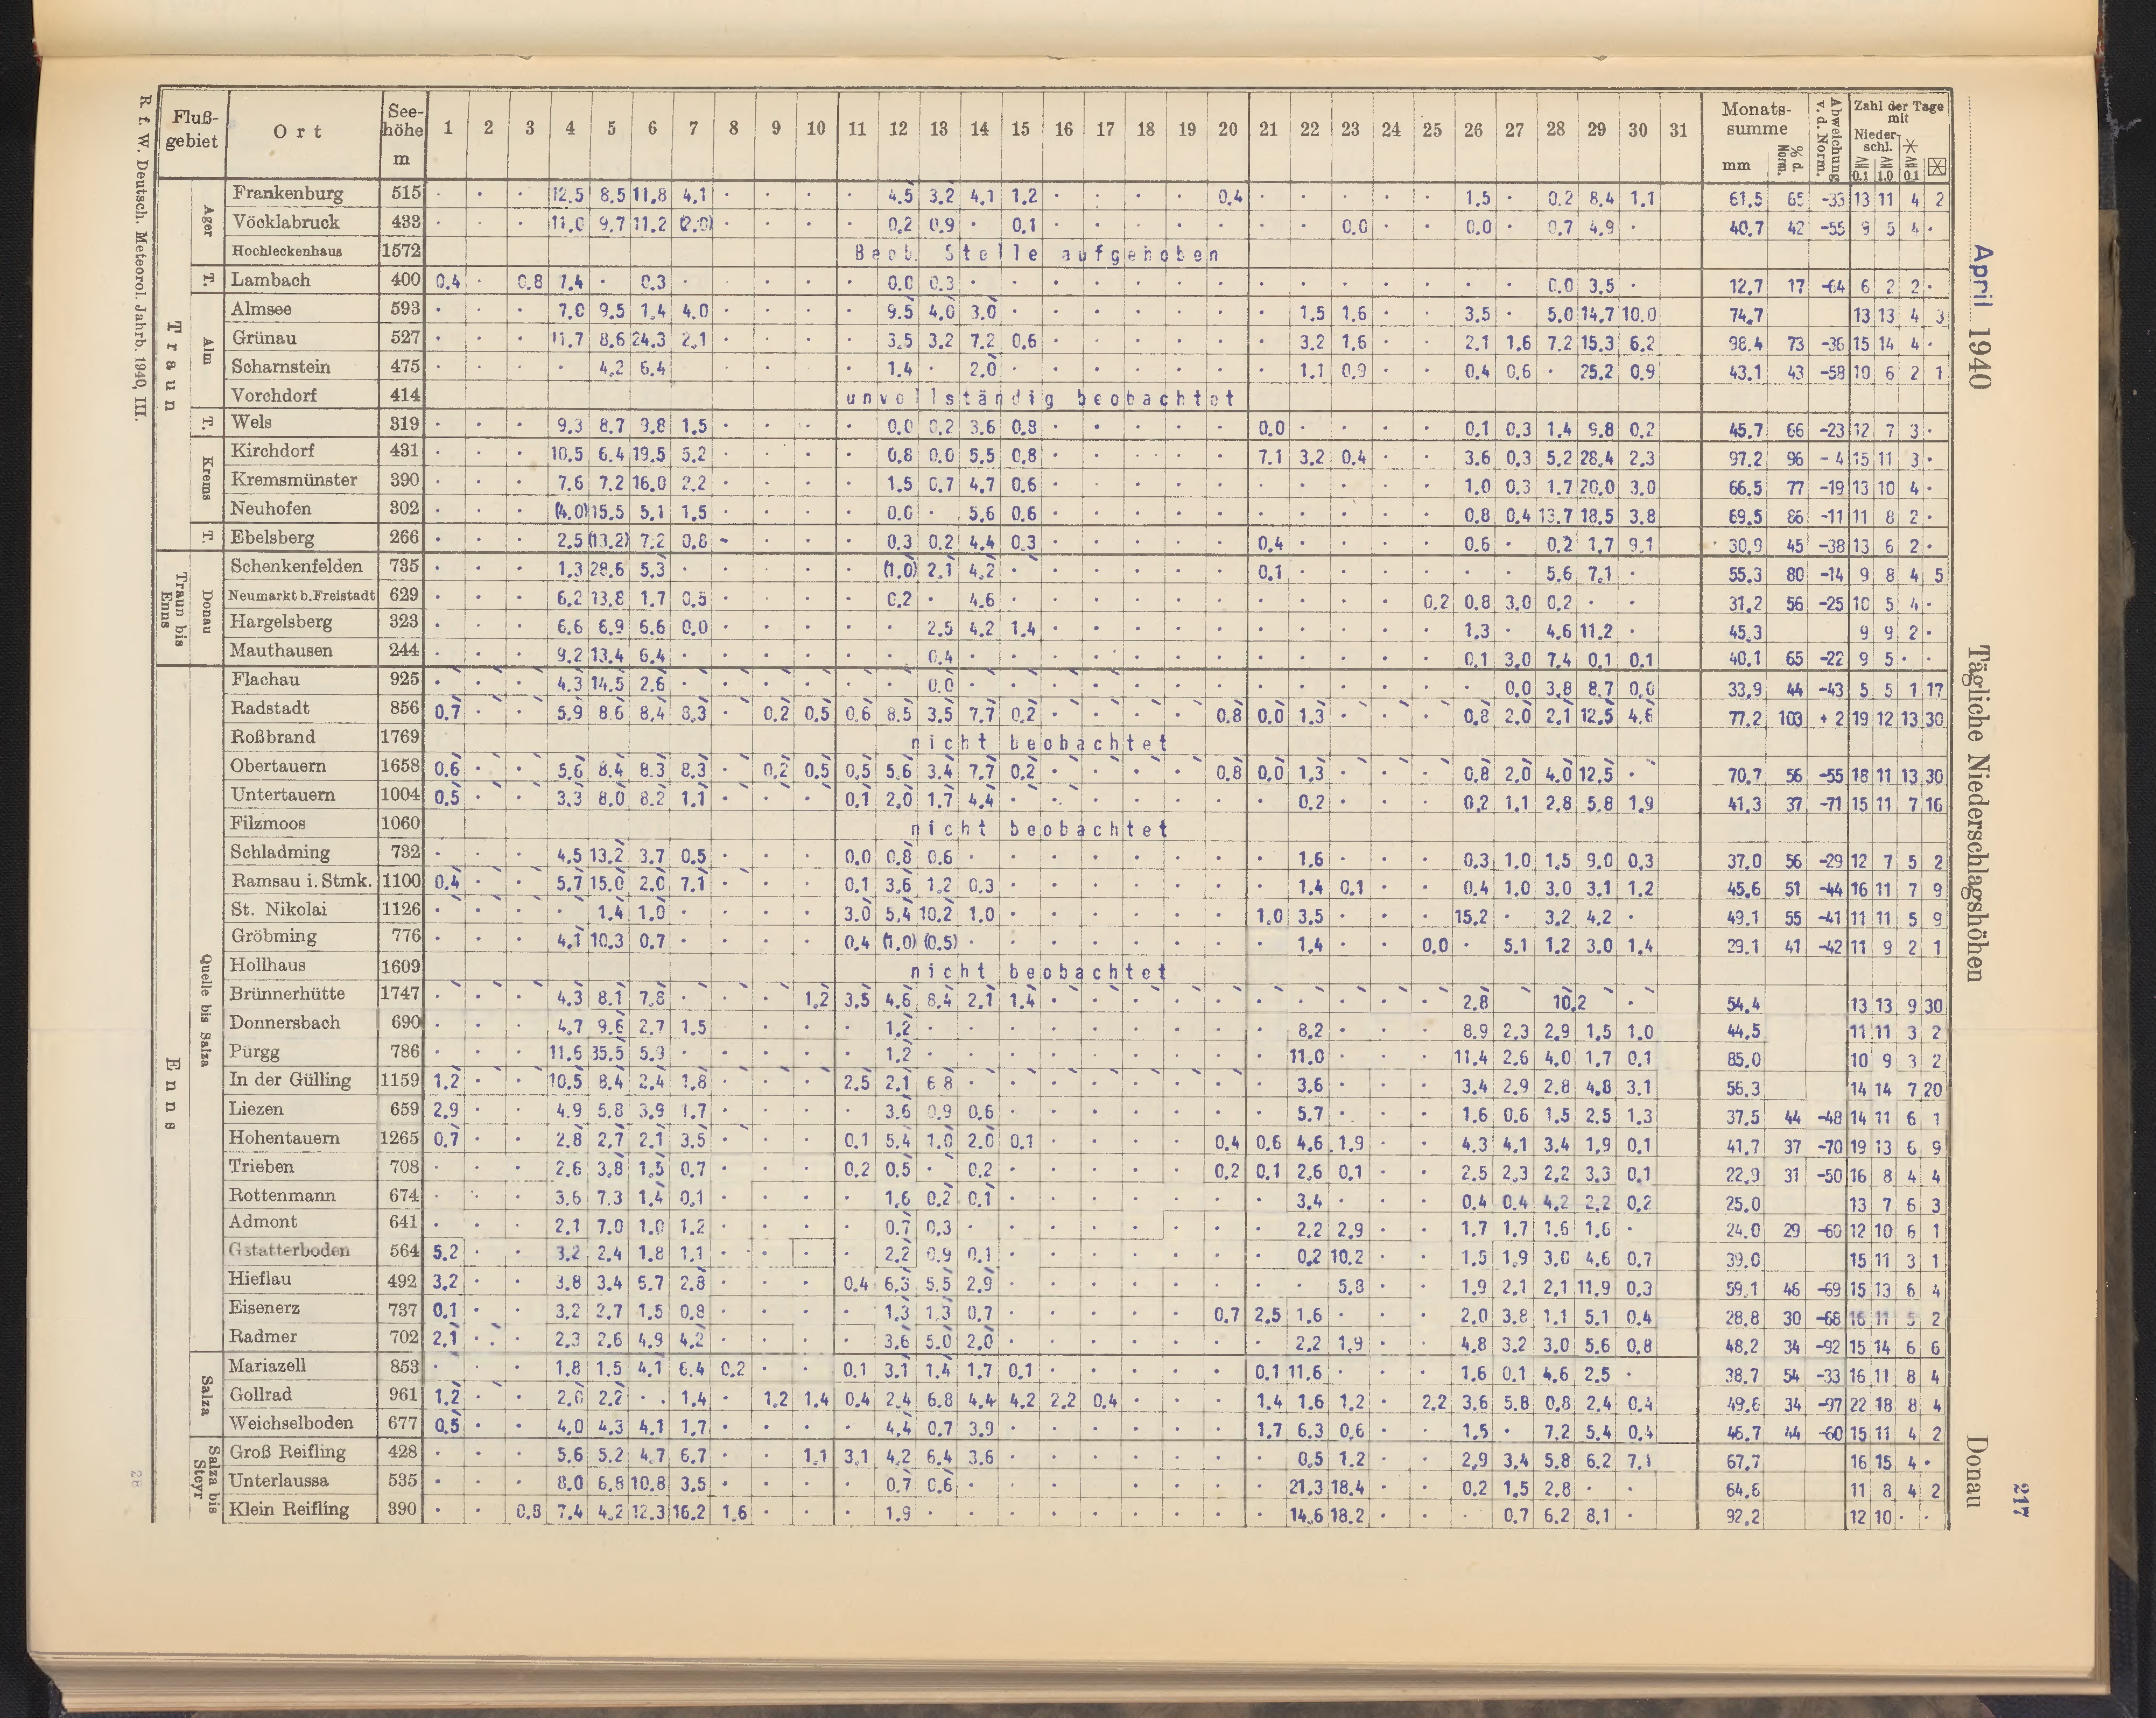 217
April 1940 Tägliche Niederschlagshöhen Donau
R. f. W. Deutsch. Meteorol. Jahrb. 1940, III.
Fluß-gebiet Ort See-höhe m 1 2 3 4 5 6 7 8 9 10 11 12 13 14 15 16 17 18 19 20 21 22 23 24 25 26 27 28 29 30 31 Monats-summe mm % d. Norm. Abweichung v. d. Norm. Zahl der Tage mit Nieder-schl. ≧0.1 ≧1.0 ≧0.1
Traun
Ager
Frankenburg 515 · · · 12.5 8.5 11.8 4.1 · · · · 4.5 3.2 4.1 1.2 · · · · 0.4 · · · · · 1.5 · 0.2 8.4 1.1 61.5 65 -33 13 11 4 2
Vöcklabruck 433 · · · 11.0 9.7 11.2 (2.0) · · · · 0.2 0.9 · 0.1 · · · · · · · 0.0 · · 0.0 · 0.7 4.9 · 40.7 42 -55 9 5 4 ·
Hochleckenhaus 1572 Beob. Stelle aufgehoben
T. Lambach 400 0.4 · 0.8 7.4 · 0.3 · · · · · 0.0 0.3 · · · · · · · · · · · · · · 0.0 3.5 · 12.7 17 -64 6 2 2 ·
Alm
Almsee 593 · · · 7.0 9.5 1.4 4.0 · · · · 9.5 4.0 3.0 · · · · · · · 1.5 1.6 · · 3.5 · 5.0 14.7 10.0 74.7 13 13 4 3
Grünau 527 · · · 11.7 8.6 24.3 2.1 · · · · 3.5 3.2 7.2 0.6 · · · · · · 3.2 1.6 · · 2.1 1.6 7.2 15.3 6.2 98.4 73 -36 15 14 4 ·
Scharnstein 475 · · · · 4.2 6.4 · · · · 1.4 · 2.0 · · · · · · · 1.1 0.9 · · 0.4 0.6 · 25.2 0.9 43.1 43 -58 10 6 2 1
Vorchdorf 414 unvollständig beobachtet
T. Wels 319 · · · 9.3 8.7 9.8 1.5 · · · · 0.0 0.2 3.6 0.8 · · · · · 0.0 · · · · 0.1 0.3 1.4 9.8 0.2 45.7 66 -23 12 7 3 ·
Krems
Kirchdorf 431 · · · 10.5 6.4 19.5 5.2 · · · · 0.8 0.0 5.5 0.8 · · · · · 7.1 3.2 0.4 · · 3.6 0.3 5.2 28.4 2.3 97.2 96 -4 15 11 3 ·
Kremsmünster 390 · · · 7.6 7.2 16.0 2.2 · · · · 1.5 0.7 4.7 0.6 · · · · · · · · · · 1.0 0.3 1.7 20.0 3.0 66.5 77 -19 13 10 4 ·
Neuhofen 302 · · · (4.0) 15.5 5.1 1.5 · · · · 0.0 · 5.6 0.6 · · · · · · · · · · 0.8 0.4 13.7 18.5 3.8 69.5 86 -11 11 8 2 ·
T. Ebelsberg 266 · · · 2.5 (13.2) 7.2 0.8 - · · · 0.3 0.2 4.4 0.3 · · · · · 0.4 · · · · 0.6 · 0.2 1.7 9.1 30.9 45 -38 13 6 2 ·
Traun bis Enns
Donau
Schenkenfelden 735 · · · 1.3 28.6 5.3 · · · · · (1.0) 2.1 4.2 · · · · · · 0.1 · · · · · · 5.6 7.1 · 55.3 80 -14 9 8 4 5
Neumarkt b. Freistadt 629 · · · 6.2 13.8 1.7 0.5 · · · · 0.2 · 4.6 · · · · · · · · · · 0.2 0.8 3.0 0.2 · · 31.2 56 -25 10 5 4 ·
Hargelsberg 323 · · · 6.6 6.9 6.6 0.0 · · · · · 2.5 4.2 1.4 · · · · · · · · · · 1.3 · 4.6 11.2 · 45.3 9 9 2 ·
Mauthausen 244 · · · 9.2 13.4 6.4 · · · · · · 0.4 · · · · · · · · · · · · 0.1 3.0 7.4 0.1 0.1 40.1 65 -22 9 5 · ·
Enns
Quelle bis Salza
Flachau 925 · · · 4.3 14.5 2.6 · · · · · · 0.0 · · · · · · · · · · · · · 0.0 3.8 8.7 0.0 33.9 44 -43 5 5 1 17
Radstadt 856 0.7 · · 5.9 8.6 8.4 8.3 · 0.2 0.5 0.6 8.5 3.5 7.7 0.2 · · · · 0.8 0.0 1.3 · · · 0.8 2.0 2.1 12.5 4.6 77.2 103 +2 19 12 13 30
Roßbrand 1769 nicht beobachtet
Obertauern 1658 0.6 · · 5.6 8.4 8.3 8.3 · 0.2 0.5 0.5 5.6 3.4 7.7 0.2 · · · · 0.8 0.0 1.3 · · · 0.8 2.0 4.0 12.5 · 70.7 56 -55 18 11 13 30
Untertauern 1004 0.5 · · 3.3 8.0 8.2 1.1 · · · 0.1 2.0 1.7 4.4 · · · · · · · 0.2 · · · 0.2 1.1 2.8 5.8 1.9 41.3 37 -71 15 11 7 16
Filzmoos 1060 nicht beobachtet
Schladming 732 · · · 4.5 13.2 3.7 0.5 · · · 0.0 0.8 0.6 · · · · · · · · 1.6 · · · 0.3 1.0 1.5 9.0 0.3 37.0 56 -29 12 7 5 2
Ramsau i. Stmk. 1100 0.4 · · 5.7 15.0 2.0 7.1 · · · 0.1 3.6 1.2 0.3 · · · · · · · 1.4 0.1 · · 0.4 1.0 3.0 3.1 1.2 45.6 51 -44 16 11 7 9
St. Nikolai 1126 · · · · 1.4 1.0 · · · · 3.0 5.4 10.2 1.0 · · · · · · 1.0 3.5 · · · 15.2 · 3.2 4.2 · 49.1 55 -41 11 11 5 9
Gröbming 776 · · · 4.1 10.3 0.7 · · · · 0.4 (1.0) (0.5) · · · · · · · · 1.4 · · 0.0 · 5.1 1.2 3.0 1.4 29.1 41 -42 11 9 2 1
Hollhaus 1609 nicht beobachtet
Brünnerhütte 1747 · · · 4.3 8.1 7.8 · · · 1.2 3.5 4.6 8.4 2.1 1.4 · · · · · · · · · · 2.8 10.2 · 54.4 13 13 9 30
Donnersbach 690 · · · 4.7 9.6 2.7 1.5 · · · · 1.2 · · · · · · · · · 8.2 · · · 8.9 2.3 2.9 1.5 1.0 44.5 11 11 3 2
Pürgg 786 · · · 11.6 35.5 5.9 · · · · · 1.2 · · · · · · · · · 11.0 · · · 11.4 2.6 4.0 1.7 0.1 85.0 10 9 3 2
In der Gülling 1159 1.2 · · 10.5 8.4 2.4 1.8 · · · 2.5 2.1 6.8 · · · · · · · · 3.6 · · · 3.4 2.9 2.8 4.8 3.1 56.3 14 14 7 20
Liezen 659 2.9 · · 4.9 5.8 3.9 1.7 · · · · 3.6 0.9 0.6 · · · · · · · 5.7 · · · 1.6 0.6 1.5 2.5 1.3 37.5 44 -48 14 11 6 1
Hohentauern 1265 0.7 · · 2.8 2.7 2.1 3.5 · · · 0.1 5.4 1.0 2.0 0.1 · · · · 0.4 0.6 4.6 1.9 · · 4.3 4.1 3.4 1.9 0.1 41.7 37 -70 19 13 6 9
Trieben 708 · · · 2.6 3.8 1.5 0.7 · · · 0.2 0.5 · 0.2 · · · · · 0.2 0.1 2.6 0.1 · · 2.5 2.3 2.2 3.3 0.1 22.9 31 -50 16 8 4 4
Rottenmann 674 · · · 3.6 7.3 1.4 0.1 · · · · 1.6 0.2 0.1 · · · · · · · 3.4 · · · 0.4 0.4 4.2 2.2 0.2 25.0 13 7 6 3
Admont 641 · · · 2.1 7.0 1.0 1.2 · · · · 0.7 0.3 · · · · · · · · 2.2 2.9 · · 1.7 1.7 1.6 1.6 · 24.0 29 -60 12 10 6 1
Gstatterboden 564 5.2 · · 3.2 2.4 1.8 1.1 · · · · 2.2 0.9 0.1 · · · · · · · 0.2 10.2 · · 1.5 1.9 3.0 4.6 0.7 39.0 15 11 3 1
Hieflau 492 3.2 · · 3.8 3.4 6.7 2.8 · · · 0.4 6.3 5.5 2.9 · · · · · · · · 5.8 · · 1.9 2.1 2.1 11.9 0.3 59.1 46 -69 15 13 6 4
Eisenerz 737 0.1 · · 3.2 2.7 1.5 0.8 · · · · 1.3 1.3 0.7 · · · · · 0.7 2.5 1.6 · · · 2.0 3.8 1.1 5.1 0.4 28.8 30 -68 16 11 5 2
Radmer 702 2.1 · · 2.3 2.6 4.9 4.2 · · · · 3.6 5.0 2.0 · · · · · · · 2.2 1.9 · · 4.8 3.2 3.0 5.6 0.8 48.2 34 -92 15 14 6 6
Salza
Mariazell 853 · · · 1.8 1.5 4.1 6.4 0.2 · · 0.1 3.1 1.4 1.7 0.1 · · · · · 0.1 11.6 · · · 1.6 0.1 4.6 2.5 · 38.7 54 -33 16 11 8 4
Gollrad 961 1.2 · · 2.0 2.2 · 1.4 · 1.2 1.4 0.4 2.4 6.8 4.4 4.2 2.2 0.4 · · · 1.4 1.6 1.2 · 2.2 3.6 5.8 0.8 2.4 0.4 49.6 34 -97 22 18 8 4
Weichselboden 677 0.5 · · 4.0 4.3 4.1 1.7 · · · · 4.4 0.7 3.9 · · · · · · 1.7 6.3 0.6 · · 1.5 · 7.2 5.4 0.4 46.7 44 -60 15 11 4 2
Salza bis Steyr
Groß Reifling 428 · · · 5.6 5.2 4.7 6.7 · · 1.1 3.1 4.2 6.4 3.6 · · · · · · · 0.5 1.2 · · 2.9 3.4 5.8 6.2 7.1 67.7 16 15 4 ·
Unterlaussa 535 · · · 8.0 6.8 10.8 3.5 · · · · 0.7 0.6 · · · · · · · · 21.3 18.4 · · 0.2 1.5 2.8 · · 64.6 11 8 4 2
Klein Reifling 390 · · 0.8 7.4 4.2 12.3 16.2 1.6 · · · 1.9 · · · · · · · · · 14.6 18.2 · · · 0.7 6.2 8.1 · 92.2 12 10 · ·
28